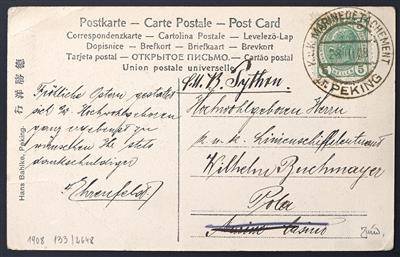 Postkarte – Carte Postale – Post Card
Correspondenzkarte – Cartolina Postale – Levelező-Lap
Dopisnice – Brefkort – Briefkaart – Brevkort
Tarjeta postal – ОТКРЫТОЕ ПИСЬМО. – Cartão postal
Union postale universelle.
K.u.K. MARINEDETACHEMENT
IN PEKING
5
S.M.B. Python.
Hochwohlgeboren Herrn
k. u. k. Linienschiffsleutnant
Wilhelm Buchmayer
Pola
Marine Casino
Fröhliche Ostern gestattet
sich Er. Hochwohlgeboren
ganz ergebenst zu
wünschen Ihr stets
dankschuldiger
Ehrenfeld
Hans Bahlke, Peking.
行洋髴德
1908 133/2648